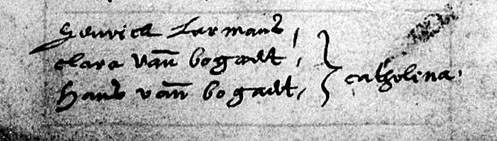 Henrick Larmans
clara van bogaert
Hans van bogaert
catholina